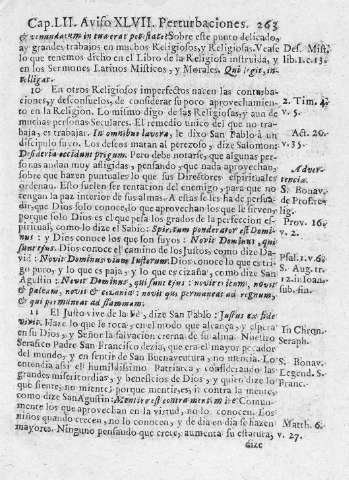 Cap. LII. Aviso XLVII. Perturbaciones. 263
Sobre este punto delicado,
ay grandes trabajos en muchos Religiosos, y Religiosas. Vease Des. Mist.
lo que tenemos dicho en el Libro de la Religiosa instruida, y lib. 1. c. 13.
en los Sermones Latinos Misticos, y Morales. Qui legit, in-
telligat.
10 En otros Religiosos imperfectos nacen las conturba-
ciones, y desconsuelos, de considerar su poco aprovechamien- 2. Tim. 4.
to en la Religion. Lo mismo digo de las Religiosas, y aun de v. 5.
muchas personas Seculares. El remedio unico del que no tra-
baja, es trabajar. In omnibus labora, le dixo San Pablo à un Act. 20.
discipulo suyo. Los deseos matan al perezoso, dize Salomon: v. 35.
Desideria occidunt pigrum. Pero debe notarse, que algunas per-
sonas andan muy afligidas, pensando, que nada aprovechan, Adver-
sobre que hazen puntuales lo que sus Directores espirituales tencia.
ordenan. Esto suelen ser tentacion del enemigo, para que no S. Bonav.
tengan la paz interior de sus almas. A estas se les ha de persua- de Profres
dir, que Dios conoce solo lo que aprovechan los que le sirven, lig.
porque solo Dios es el que pesa los grados de la perfeccion es- Prov. 16.
piritual, como lo dize el Sabio: Spirituum ponderator est Domi- v. 2.
nus: y Dios conoce los que son suyos: Novit Dominus, qui
sunt ejus. Dios conoce el camino de los Justos, como dize Da-
vid: Novit Dominus viam Justorum. Dios conoce lo que es tri- Psal. 1. v. 6.
go puro, y lo que es paja, y lo que es cizaña, como dize San S. Aug. tr.
Agustin: Novit Dominus, qui sunt ejus: novit triticum, novit 12. in Joan.
& paleam, novit & cizania: novit qui permaneat ad regnum, sub. fin.
& qui permaneat ad flammam.
11 El Justo vive de la Fè, dize San Pablo: Justus ex fide
vivit. Haze lo que le toca, en el modo que alcanza, y espera
en su Dios, y Señor la salvacion eterna de su alma. Nuestro In Chron.
Serafico Padre San Francisco dezia, que era el mayor pecador Seraph.
del mundo, y en sentir de San Buenaventura, no mentia. Lo
entendia assi el humildissimo Patriarca, considerando las S. Bonav.
grandes misericordias, y beneficios de Dios, y quien dize lo Legend. S.
que siente, no miente; porque mentir es, ir contra la mente, Franc.
como dize San Agustin: Mentire est contra mentem ire. Comun-
mente los que aprovechan en la virtud, no lo conocen. Los
niños quando crecen, no lo conocen, y de dia en dia se hazen Matth. 6.
mayores. Ninguno pensando que crece, aumenta su estatura, v. 27.
dize